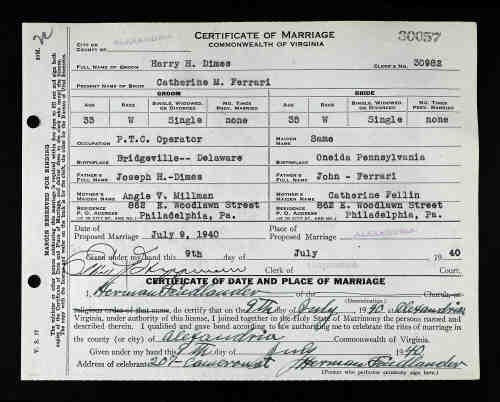 CERTIFICATE OF MARRIAGE
COMMONWEALTH OF VIRGINIA
30057
CITY OR
COUNTY OF ALEXANDRIA
FULL NAME OF GROOM Harry H. Dimes CLERK'S NO. 30982
PRESENT NAME OF BRIDE Catherine M. Ferrari
GROOM BRIDE
AGE RACE SINGLE, WIDOWED, OR DIVORCED NO. TIMES PREV. MARRIED AGE RACE SINGLE, WIDOWED, OR DIVORCED NO. TIMES PREV. MARRIED
35 W Single none 33 W Single none
OCCUPATION P.T.C. Operator MAIDEN NAME Same
BIRTHPLACE Bridgeville-- Delaware BIRTHPLACE Oneida Pennsylvania
FATHER'S FULL NAME Joseph H.-Dimes FATHER'S FULL NAME John - Ferrari
MOTHER'S MAIDEN NAME Angie V. Millman MOTHER'S MAIDEN NAME Catherine Fellin
RESIDENCE P. O. ADDRESS 862 E. Woodlawn Street RESIDENCE P. O. ADDRESS 862 E. Woodlawn Street
Philadelphia, Pa. Philadelphia, Pa.
Date of Proposed Marriage July 9, 1940 Place of Proposed Marriage ALEXANDRIA
Given under my hand this 9th day of July 19 40
Clerk of Court.
CERTIFICATE OF DATE AND PLACE OF MARRIAGE
I, Herman Friedlander of the Church, or
religious order of that name, do certify that on the 9th day of July 1940, at Alexandria
Virginia, under authority of this license, I joined together in the Holy State of Matrimony the persons named and
described therein. I qualified and gave bond according to law authorizing me to celebrate the rites of marriage in
the county (or city) of Alexandria
Given under my hand this 9th day of July 1940
Address of celebrant 201 Herman Friedlander
(Person who performs ceremony sign here.)
V. S. 3
MARGIN RESERVED FOR BINDING